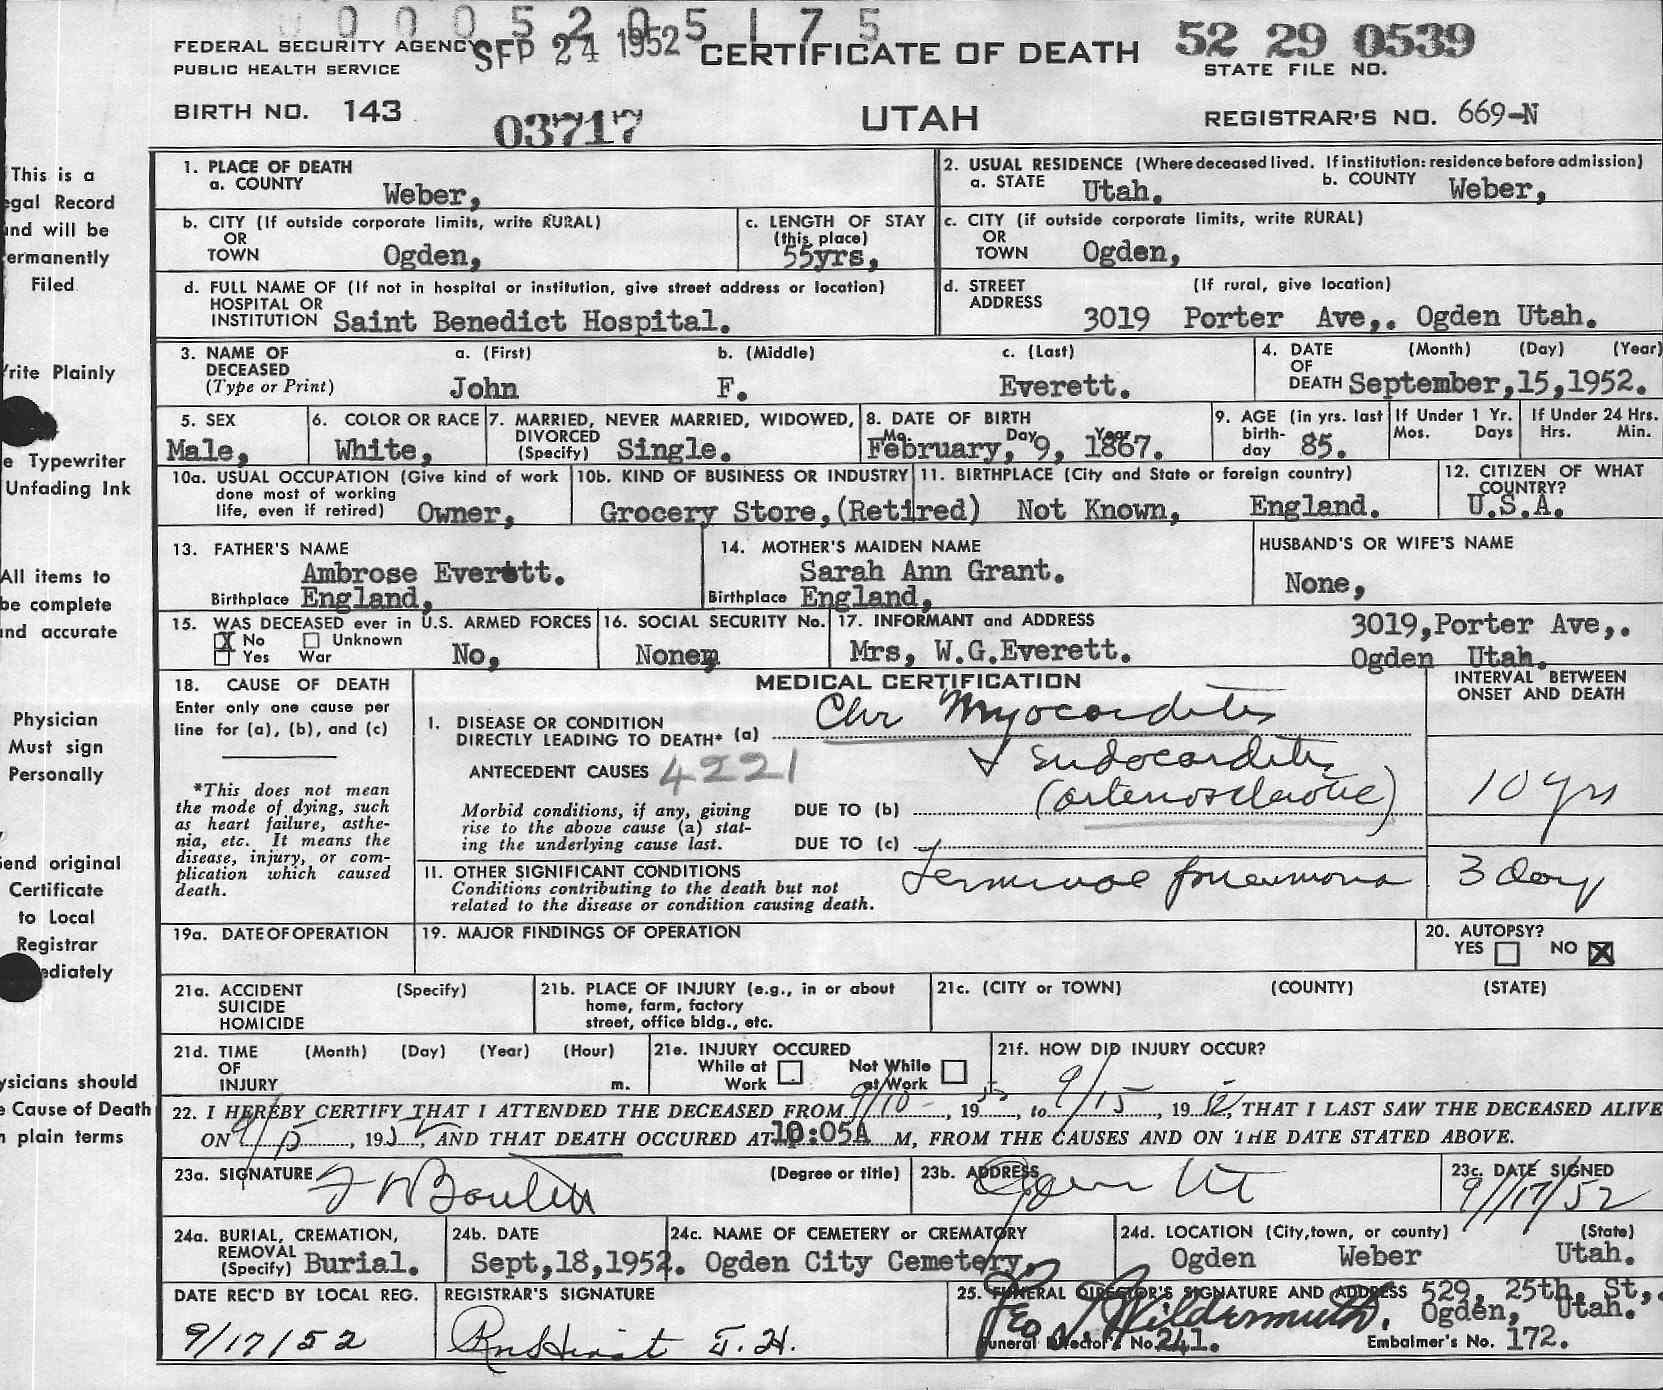 0 0 0 5 2 0 5 1 7 5
FEDERAL SECURITY AGENCY SEP 24 1952 CERTIFICATE OF DEATH 52 29 0539
PUBLIC HEALTH SERVICE STATE FILE NO.
BIRTH NO. 143 03717 UTAH REGISTRAR'S NO. 669-N
This is a
egal Record
and will be
ermanently
Filed
rite Plainly
e Typewriter
Unfading Ink
All items to
be complete
and accurate
Physician
Must sign
Personally
end original
Certificate
to Local
Registrar
ediately
ysicians should
e Cause of Death
n plain terms
1. PLACE OF DEATH
a. COUNTY Weber,
2. USUAL RESIDENCE (Where deceased lived. If institution: residence before admission)
a. STATE Utah. b. COUNTY Weber,
b. CITY (If outside corporate limits, write RURAL)
OR
TOWN Ogden,
c. LENGTH OF STAY
(this place)
55yrs,
c. CITY (if outside corporate limits, write RURAL)
OR
TOWN Ogden,
d. FULL NAME OF (If not in hospital or institution, give street address or location)
HOSPITAL OR
INSTITUTION Saint Benedict Hospital.
d. STREET (If rural, give location)
ADDRESS 3019 Porter Ave,. Ogden Utah.
3. NAME OF a. (First) b. (Middle) c. (Last)
DECEASED
(Type or Print) John F. Everett.
4. DATE (Month) (Day) (Year)
OF
DEATH September,15,1952.
5. SEX
Male,
6. COLOR OR RACE
White,
7. MARRIED, NEVER MARRIED, WIDOWED,
DIVORCED
(Specify) Single.
8. DATE OF BIRTH
Mo. Day Year
February, 9, 1867.
9. AGE (in yrs. last
birth-
day 85.
If Under 1 Yr.
Mos. Days
If Under 24 Hrs.
Hrs. Min.
10a. USUAL OCCUPATION (Give kind of work
done most of working
life, even if retired) Owner,
10b. KIND OF BUSINESS OR INDUSTRY
Grocery Store,(Retired)
11. BIRTHPLACE (City and State or foreign country)
Not Known, England.
12. CITIZEN OF WHAT
COUNTRY?
U.S.A.
13. FATHER'S NAME
Ambrose Everett.
Birthplace England,
14. MOTHER'S MAIDEN NAME
Sarah Ann Grant.
Birthplace England,
HUSBAND'S OR WIFE'S NAME
None,
15. WAS DECEASED ever in U.S. ARMED FORCES
X No Unknown
Yes War No,
16. SOCIAL SECURITY No.
None,
17. INFORMANT and ADDRESS 3019,Porter Ave,.
Mrs, W.G.Everett. Ogden Utah.
18. CAUSE OF DEATH
Enter only one cause per
line for (a), (b), and (c)
*This does not mean
the mode of dying, such
as heart failure, asthe-
nia, etc. It means the
disease, injury, or com-
plication which caused
death.
MEDICAL CERTIFICATION
INTERVAL BETWEEN
ONSET AND DEATH
1. DISEASE OR CONDITION Chr Myocarditis
DIRECTLY LEADING TO DEATH* (a)
& Endocarditis
ANTECEDENT CAUSES 4221
Morbid conditions, if any, giving
rise to the above cause (a) stat-
ing the underlying cause last.
DUE TO (b) (arteriosclerotic) 10 yrs
DUE TO (c)
11. OTHER SIGNIFICANT CONDITIONS Terminal pneumonia 3 day
Conditions contributing to the death but not
related to the disease or condition causing death.
19a. DATE OF OPERATION
19. MAJOR FINDINGS OF OPERATION
20. AUTOPSY?
YES NO X
21a. ACCIDENT (Specify)
SUICIDE
HOMICIDE
21b. PLACE OF INJURY (e.g., in or about
home, farm, factory
street, office bldg., etc.
21c. (CITY or TOWN) (COUNTY) (STATE)
21d. TIME (Month) (Day) (Year) (Hour)
OF
INJURY m.
21e. INJURY OCCURED
While at Not While
Work at Work
21f. HOW DID INJURY OCCUR?
22. I HEREBY CERTIFY THAT I ATTENDED THE DECEASED FROM 9/10, 1952, to 9/15, 1952, THAT I LAST SAW THE DECEASED ALIVE
ON 9/15, 1952, AND THAT DEATH OCCURED AT 10:05A M, FROM THE CAUSES AND ON THE DATE STATED ABOVE.
23a. SIGNATURE (Degree or title)
23b. ADDRESS
Ogden Ut
23c. DATE SIGNED
9/17/52
24a. BURIAL, CREMATION,
REMOVAL
(Specify) Burial.
24b. DATE
Sept,18,1952.
24c. NAME OF CEMETERY or CREMATORY
Ogden City Cemetery.
24d. LOCATION (City,town, or county) (State)
Ogden Weber Utah.
DATE REC'D BY LOCAL REG.
9/17/52
REGISTRAR'S SIGNATURE
25. FUNERAL DIRECTOR'S SIGNATURE AND ADDRESS 529, 25th, St,.
Ogden, Utah.
Funeral Director's No. 241. Embalmer's No. 172.